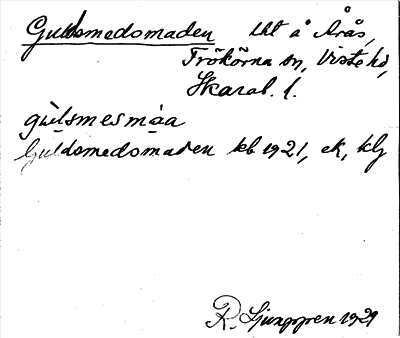 Guldsmedsmaden lht å Årås,
Frökörna sn, Viste hd,
Skarab. l.
gùlsmesmàa
Guldsmedsmaden kb 1921, ek, klj
R. Ljunggren 1929